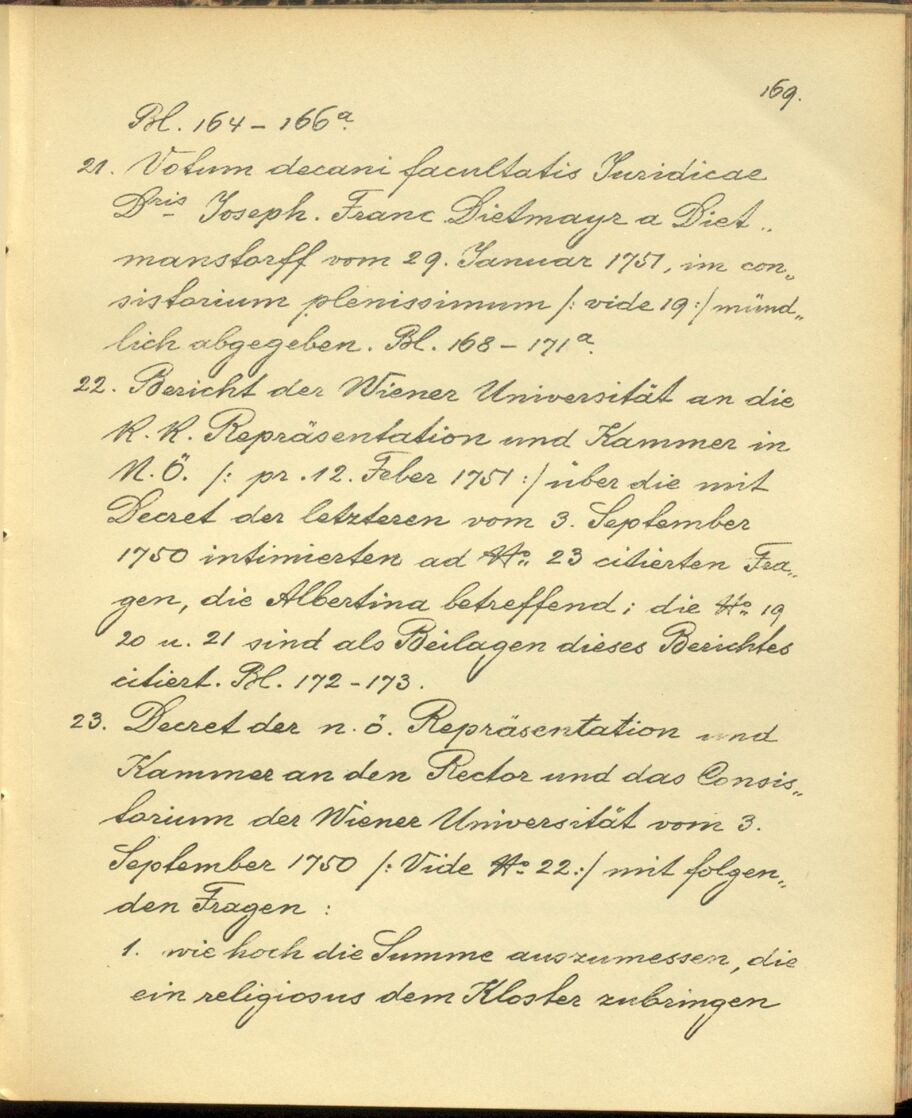 169.
Bl. 164 – 166ª.
21. Votum decani facultatis Juridicae
Dris Joseph. Franc Dietmayr a Diet„
manstorff vom 29. Januar 1751, im con„
sistorium plenissimum /: vide 19 :/ münd„
lich abgegeben. Bl. 168 – 171ª.
22. Bericht der Wiener Universität an die
K. K. Repräsentation und Kammer in
N. Ö. /: pr. 12. Feber 1751 :/ über die mit
Decret der letzteren vom 3. September
1750 intimierten ad No. 23 citierten Fra„
gen, die Albertina betreffend; die No. 19
20 u. 21 sind als Beilagen dieses Berichtes
citiert. Bl. 172 – 173.
23. Decret der n. ö. Repräsentation und
Kammer an den Rector und das Consis„
torium der Wiener Universität vom 3.
September 1750 /: Vide No. 22 :/ mit folgen„
den Fragen :
1. wie hoch die Summe auszumessen, die
ein religiosus dem Kloster zubringen